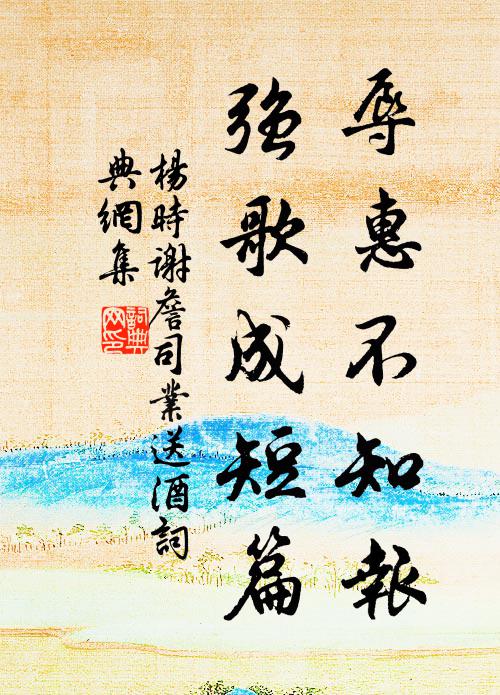 辱惠不知報
強歌成短篇
楊時謝詹司業送酒詞
典網集
詞典
网印